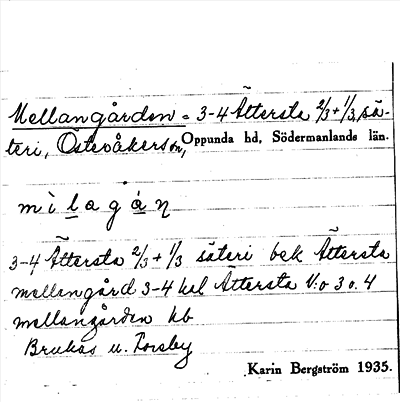 Mellangården = 3-4 Ättersta 2/3+1/3, sä-
teri, Österåkers sn, Oppunda hd, Södermanlands län.
mìlagán
3-4 Ättersta 2/3+1/3 säteri bek Ättersta
mellangård 3-4 hel Ättersta N:o 3 o. 4
mellangården kb
Brukas u. Forsby
Karin Bergström 1935.